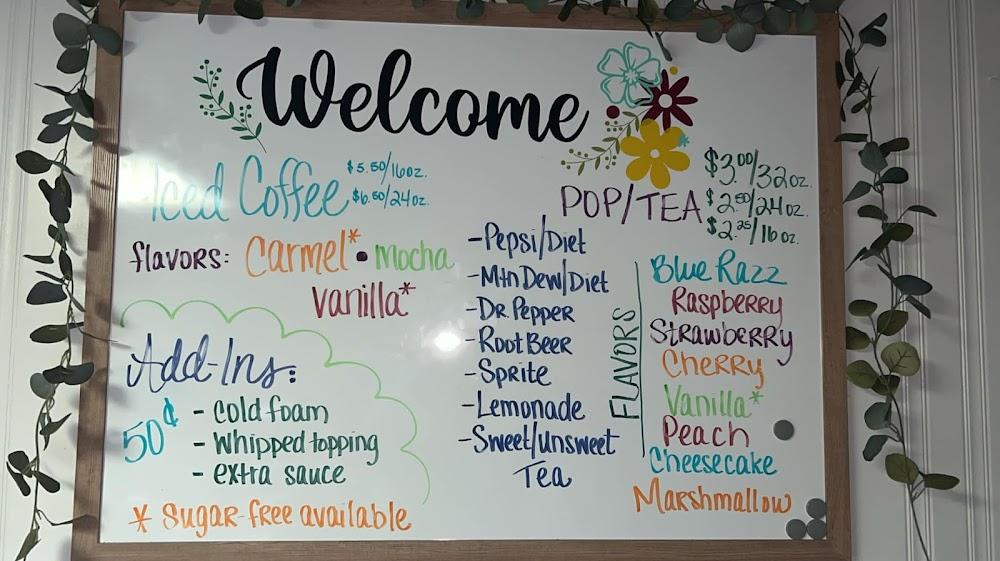 Welcome
Iced Coffee
$5.50/16oz.
$6.50/24oz.
flavors: Carmel* • mocha
vanilla*
Add-Ins:
50¢
- cold foam
- whipped topping
- extra sauce
* Sugar-free available
POP/TEA
$3.00/32oz.
$2.50/24oz.
$2.25/16oz.
-Pepsi/Diet
-Mtn Dew/Diet
-Dr. Pepper
-Root Beer
-Sprite
-Lemonade
-Sweet/Unsweet
Tea
FLAVORS
Blue Razz
Raspberry
Strawberry
Cherry
Vanilla*
Peach
Cheesecake
Marshmallow